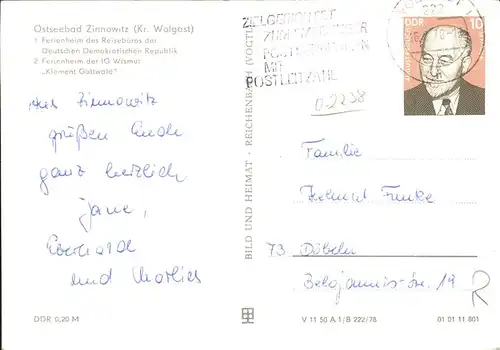 Ostseebad Zinnowitz (Kr. Wolgast)
1 Ferienheim des Reisebüros der
Deutschen Demokratischen Republik
2 Ferienheim der IG Wismut
„Klement Gottwald"
Aus Zinnowitz
grüßen Euch
ganz herzlich
Jane,
Eberhard
und Marlies
DDR 0,20 M
BILD UND HEIMAT · REICHENBACH (VOGTL
222
ZIELGERICHTET
POSTLEITZAHL
MIT
DDR
10
0-2238
Familie
Helmut Funke
73 Döbeln
Belojannis-Str. 19
R
V 11 50 A 1/B 222/78
01 01 11 801